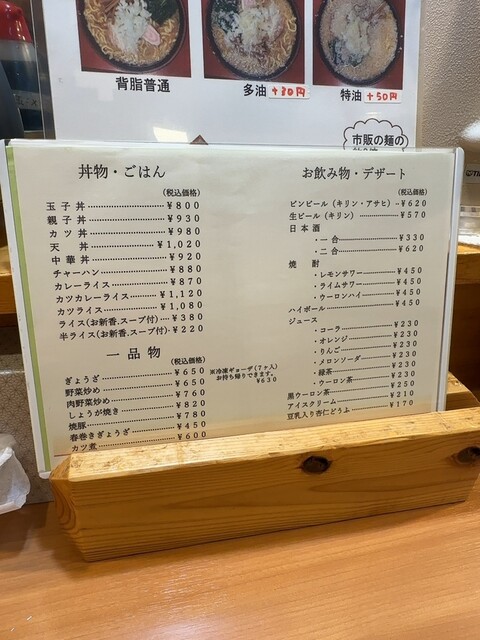 背脂普通
多油 +30円
特油 +50円
市販の麺の
丼物・ごはん
(税込価格)
玉子丼 ¥800
親子丼 ¥930
カツ丼 ¥980
天丼 ¥1,020
中華丼 ¥920
チャーハン ¥880
カレーライス ¥870
カツカレーライス ¥1,120
カツライス ¥1,080
ライス(お新香、スープ付) ¥380
半ライス(お新香、スープ付) ¥220
一品物
(税込価格)
ぎょうざ ¥650
野菜炒め ¥650
肉野菜炒め ¥760
しょうが焼き ¥820
焼豚 ¥780
春巻きぎょうざ ¥450
カツ煮 ¥600
※冷凍ギョーザ(7ヶ入)
お持ち帰りできます。
¥630
お飲み物・デザート
(税込価格)
ビンビール(キリン・アサヒ) ¥620
生ビール(キリン) ¥570
日本酒
・一合 ¥330
・二合 ¥620
焼酎
・レモンサワー ¥450
・ライムサワー ¥450
・ウーロンハイ ¥450
ハイボール ¥450
ジュース
・コーラ ¥230
・オレンジ ¥230
・りんご ¥230
・メロンソーダ ¥230
・緑茶 ¥230
・ウーロン茶 ¥230
黒ウーロン茶 ¥250
アイスクリーム ¥210
豆乳入り杏仁どうふ ¥170